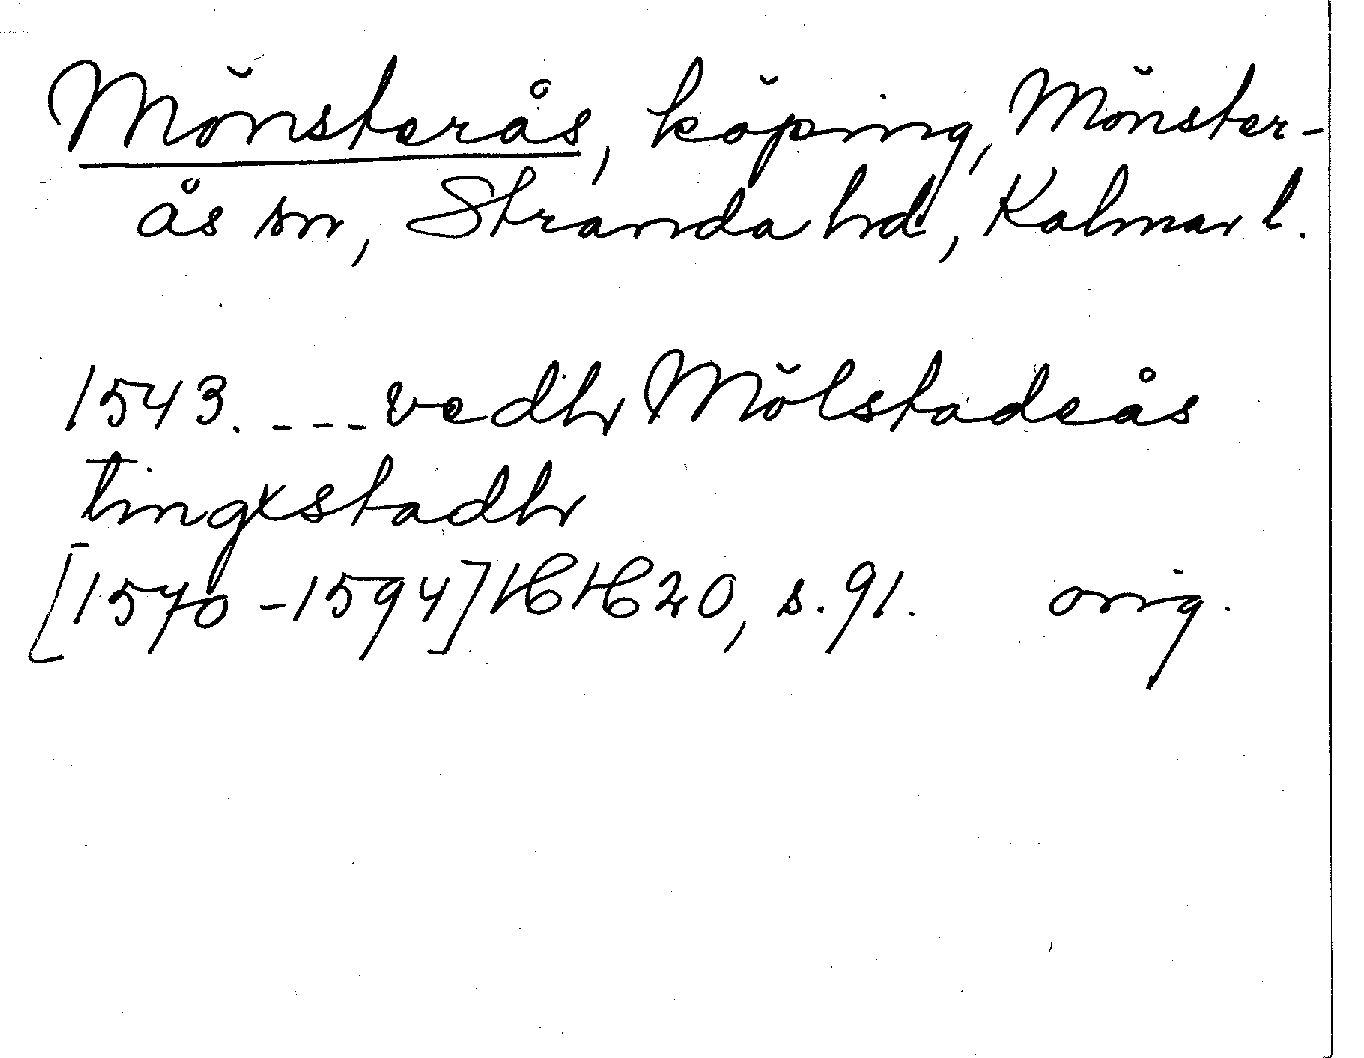 Mönsterås, köping, Mönster-
ås sn, Stranda hd, Kalmar l.
1543. ---- vedh Mölstadeås
tingxstadh
[1570-1594] HH 20, s. 91. orig.